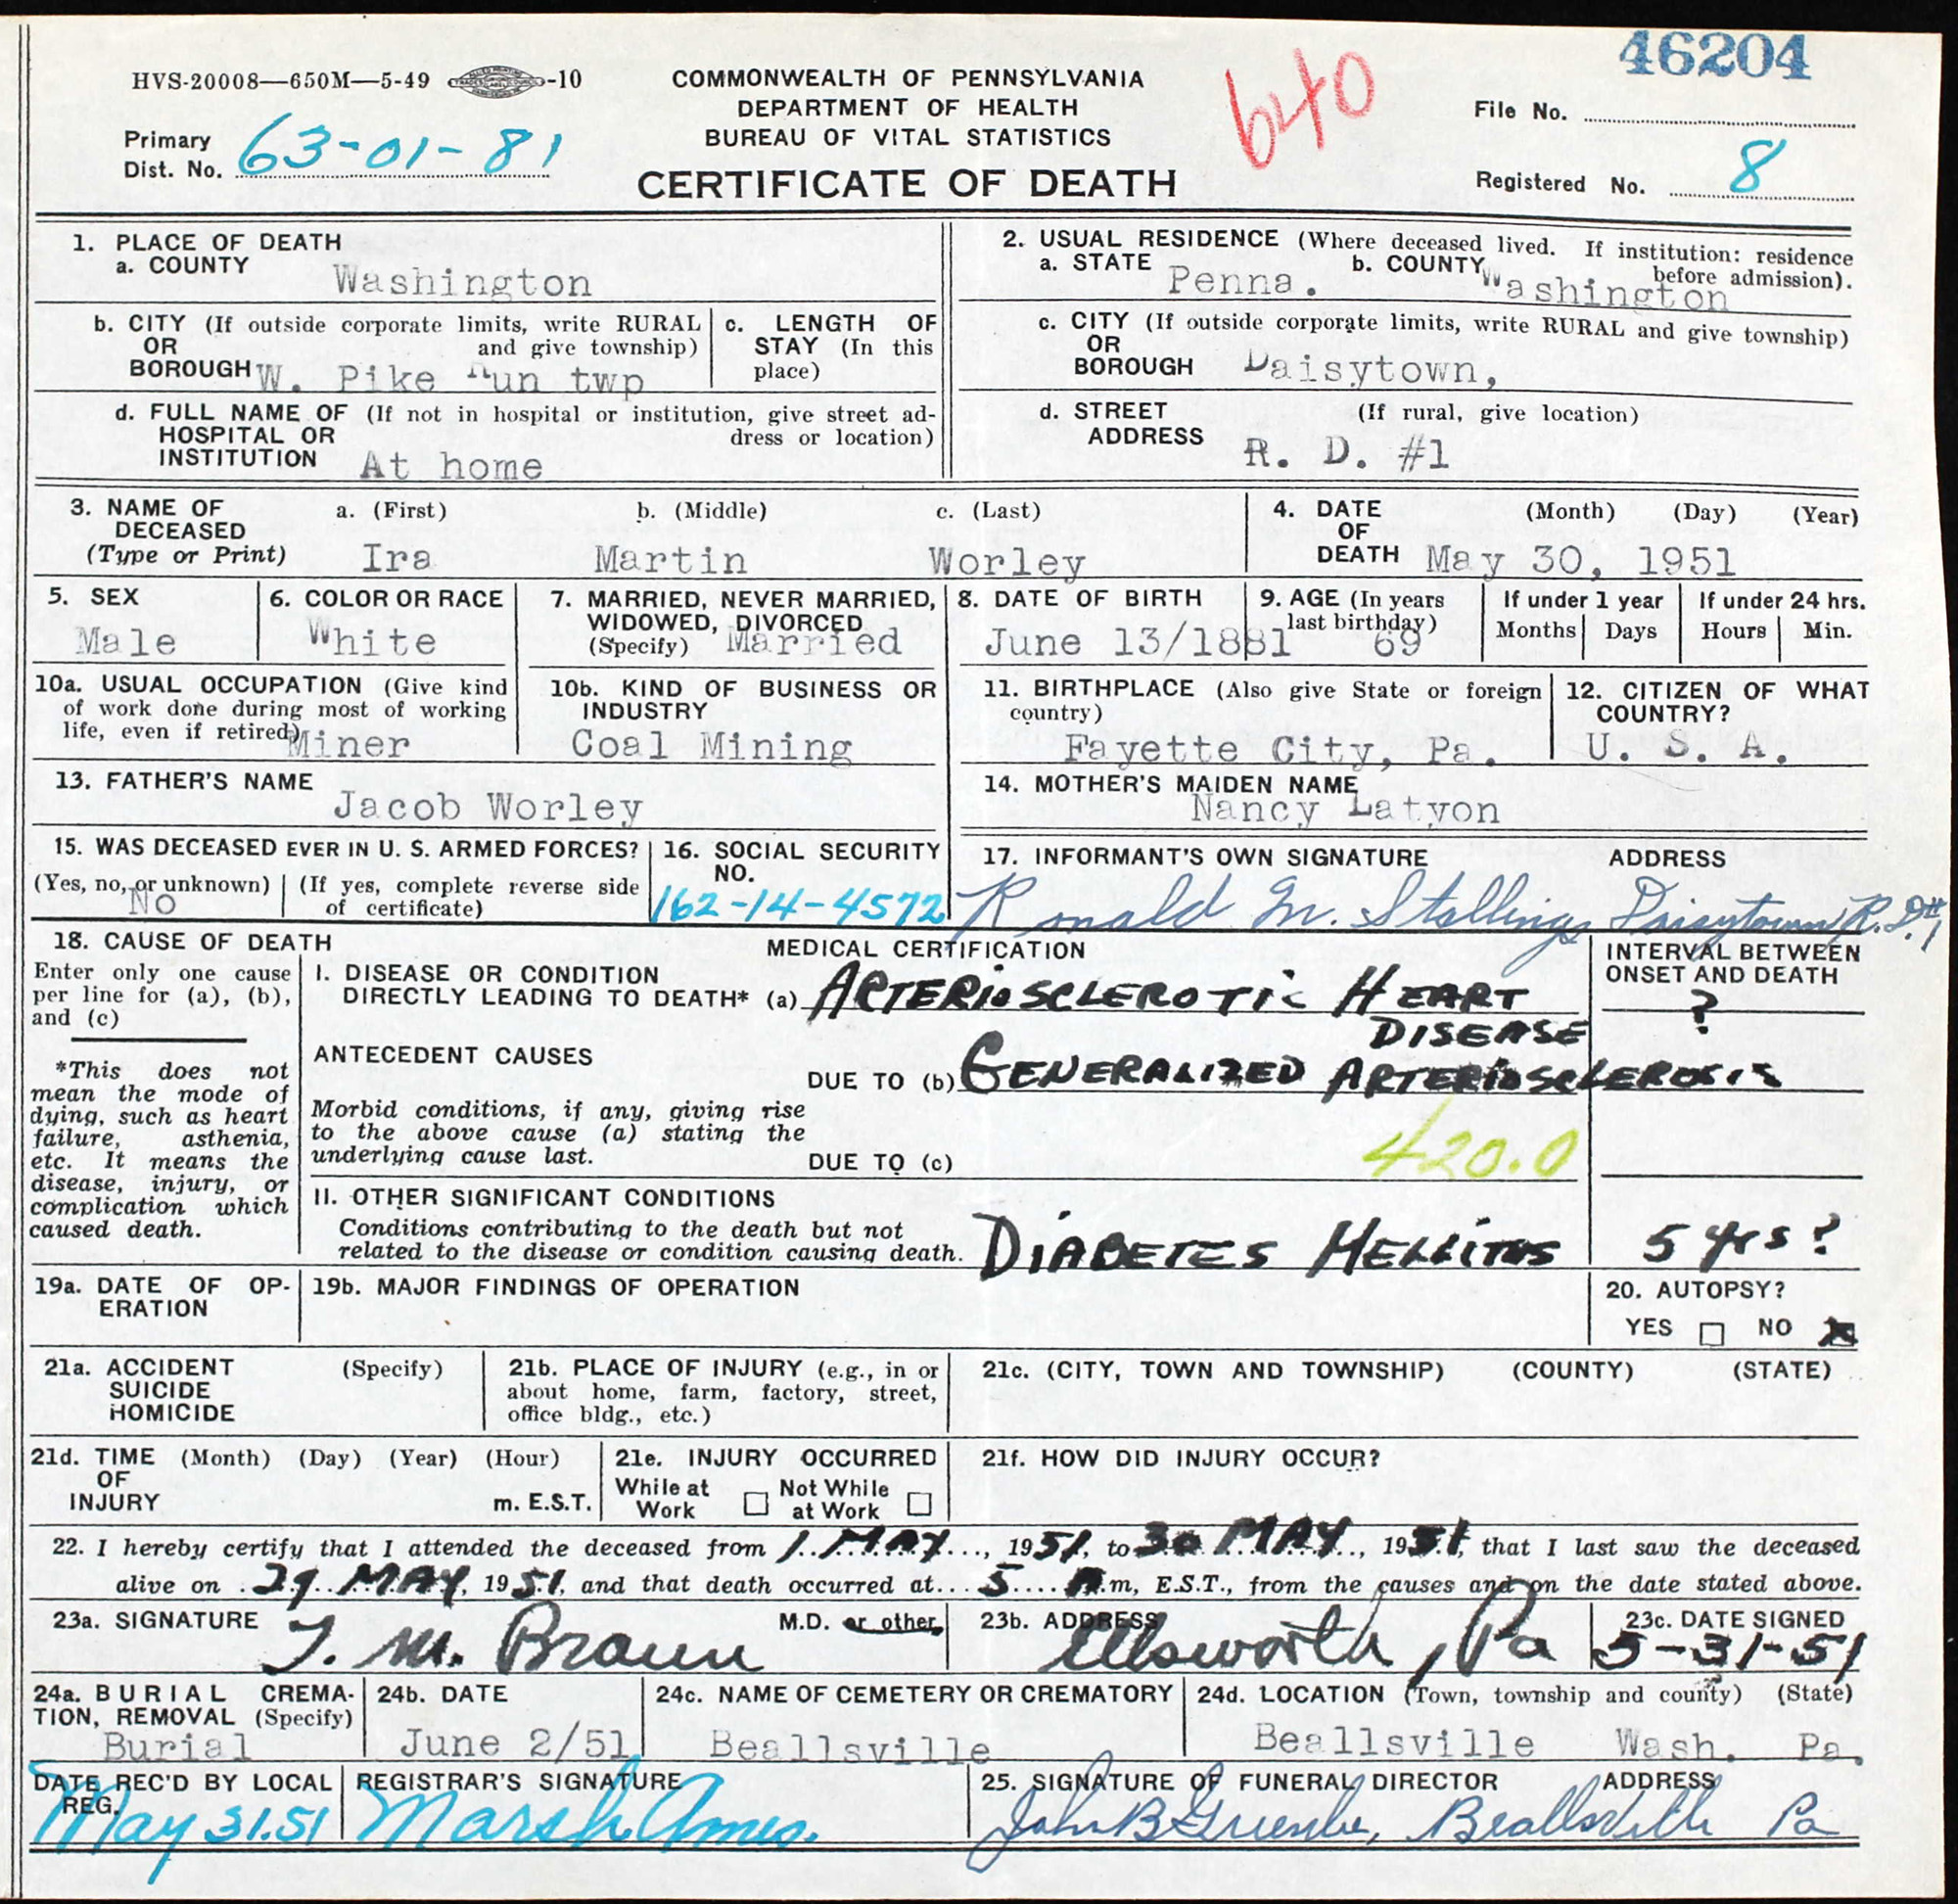 46204
HVS-20008—650M—5-49 -10
COMMONWEALTH OF PENNSYLVANIA
DEPARTMENT OF HEALTH
BUREAU OF VITAL STATISTICS
CERTIFICATE OF DEATH
640
File No.
Primary Dist. No. 63-01-81
Registered No. 8
1. PLACE OF DEATH
a. COUNTY Washington
2. USUAL RESIDENCE (Where deceased lived. If institution: residence before admission).
a. STATE Penna. b. COUNTY Washington
b. CITY (If outside corporate limits, write RURAL and give township)
OR
BOROUGH W. Pike Run twp
c. LENGTH OF STAY (In this place)
c. CITY (If outside corporate limits, write RURAL and give township)
OR
BOROUGH Daisytown,
d. FULL NAME OF (If not in hospital or institution, give street address or location)
HOSPITAL OR
INSTITUTION At home
d. STREET ADDRESS (If rural, give location)
R. D. #1
3. NAME OF DECEASED (Type or Print)
a. (First) b. (Middle) c. (Last)
Ira Martin Worley
4. DATE OF DEATH (Month) (Day) (Year)
May 30, 1951
5. SEX
Male
6. COLOR OR RACE
White
7. MARRIED, NEVER MARRIED, WIDOWED, DIVORCED (Specify) Married
8. DATE OF BIRTH
June 13/1881
9. AGE (In years last birthday)
69
If under 1 year
Months Days
If under 24 hrs.
Hours Min.
10a. USUAL OCCUPATION (Give kind of work done during most of working life, even if retired) Miner
10b. KIND OF BUSINESS OR INDUSTRY
Coal Mining
11. BIRTHPLACE (Also give State or foreign country)
Fayette City, Pa.
12. CITIZEN OF WHAT COUNTRY?
U. S. A.
13. FATHER'S NAME
Jacob Worley
14. MOTHER'S MAIDEN NAME
Nancy Latyon
15. WAS DECEASED EVER IN U. S. ARMED FORCES?
(Yes, no, or unknown) (If yes, complete reverse side of certificate)
No
16. SOCIAL SECURITY NO.
162-14-4572
17. INFORMANT'S OWN SIGNATURE ADDRESS
Ronald M. Stallings Daisytown R.D.#1
18. CAUSE OF DEATH
Enter only one cause per line for (a), (b), and (c)
*This does not mean the mode of dying, such as heart failure, asthenia, etc. It means the disease, injury, or complication which caused death.
MEDICAL CERTIFICATION
INTERVAL BETWEEN ONSET AND DEATH
I. DISEASE OR CONDITION
DIRECTLY LEADING TO DEATH* (a) ARTERIOSCLEROTIC HEART DISEASE ?
ANTECEDENT CAUSES
DUE TO (b) GENERALIZED ARTERIOSCLEROSIS
Morbid conditions, if any, giving rise to the above cause (a) stating the underlying cause last.
DUE TO (c)
420.0
II. OTHER SIGNIFICANT CONDITIONS
Conditions contributing to the death but not related to the disease or condition causing death.
DIABETES MELLITUS 5 yrs?
19a. DATE OF OPERATION
19b. MAJOR FINDINGS OF OPERATION
20. AUTOPSY?
YES NO
21a. ACCIDENT SUICIDE HOMICIDE (Specify)
21b. PLACE OF INJURY (e.g., in or about home, farm, factory, street, office bldg., etc.)
21c. (CITY, TOWN AND TOWNSHIP) (COUNTY) (STATE)
21d. TIME OF INJURY (Month) (Day) (Year) (Hour)
m. E.S.T.
21e. INJURY OCCURRED
While at Work Not While at Work
21f. HOW DID INJURY OCCUR?
22. I hereby certify that I attended the deceased from 1 MAY, 1951, to 30 MAY, 1951, that I last saw the deceased
alive on 29 MAY, 1951, and that death occurred at 5 A.m, E.S.T., from the causes and on the date stated above.
23a. SIGNATURE
T. M. Braun
M.D. or other
23b. ADDRESS
Ellsworth, Pa
23c. DATE SIGNED
5-31-51
24a. BURIAL CREMATION, REMOVAL (Specify)
Burial
24b. DATE
June 2/51
24c. NAME OF CEMETERY OR CREMATORY
Beallsville
24d. LOCATION (Town, township and county) (State)
Beallsville Wash. Pa.
DATE REC'D BY LOCAL REG.
May 31.51
REGISTRAR'S SIGNATURE
Marsh Ames.
25. SIGNATURE OF FUNERAL DIRECTOR ADDRESS
John B Beallsville Pa